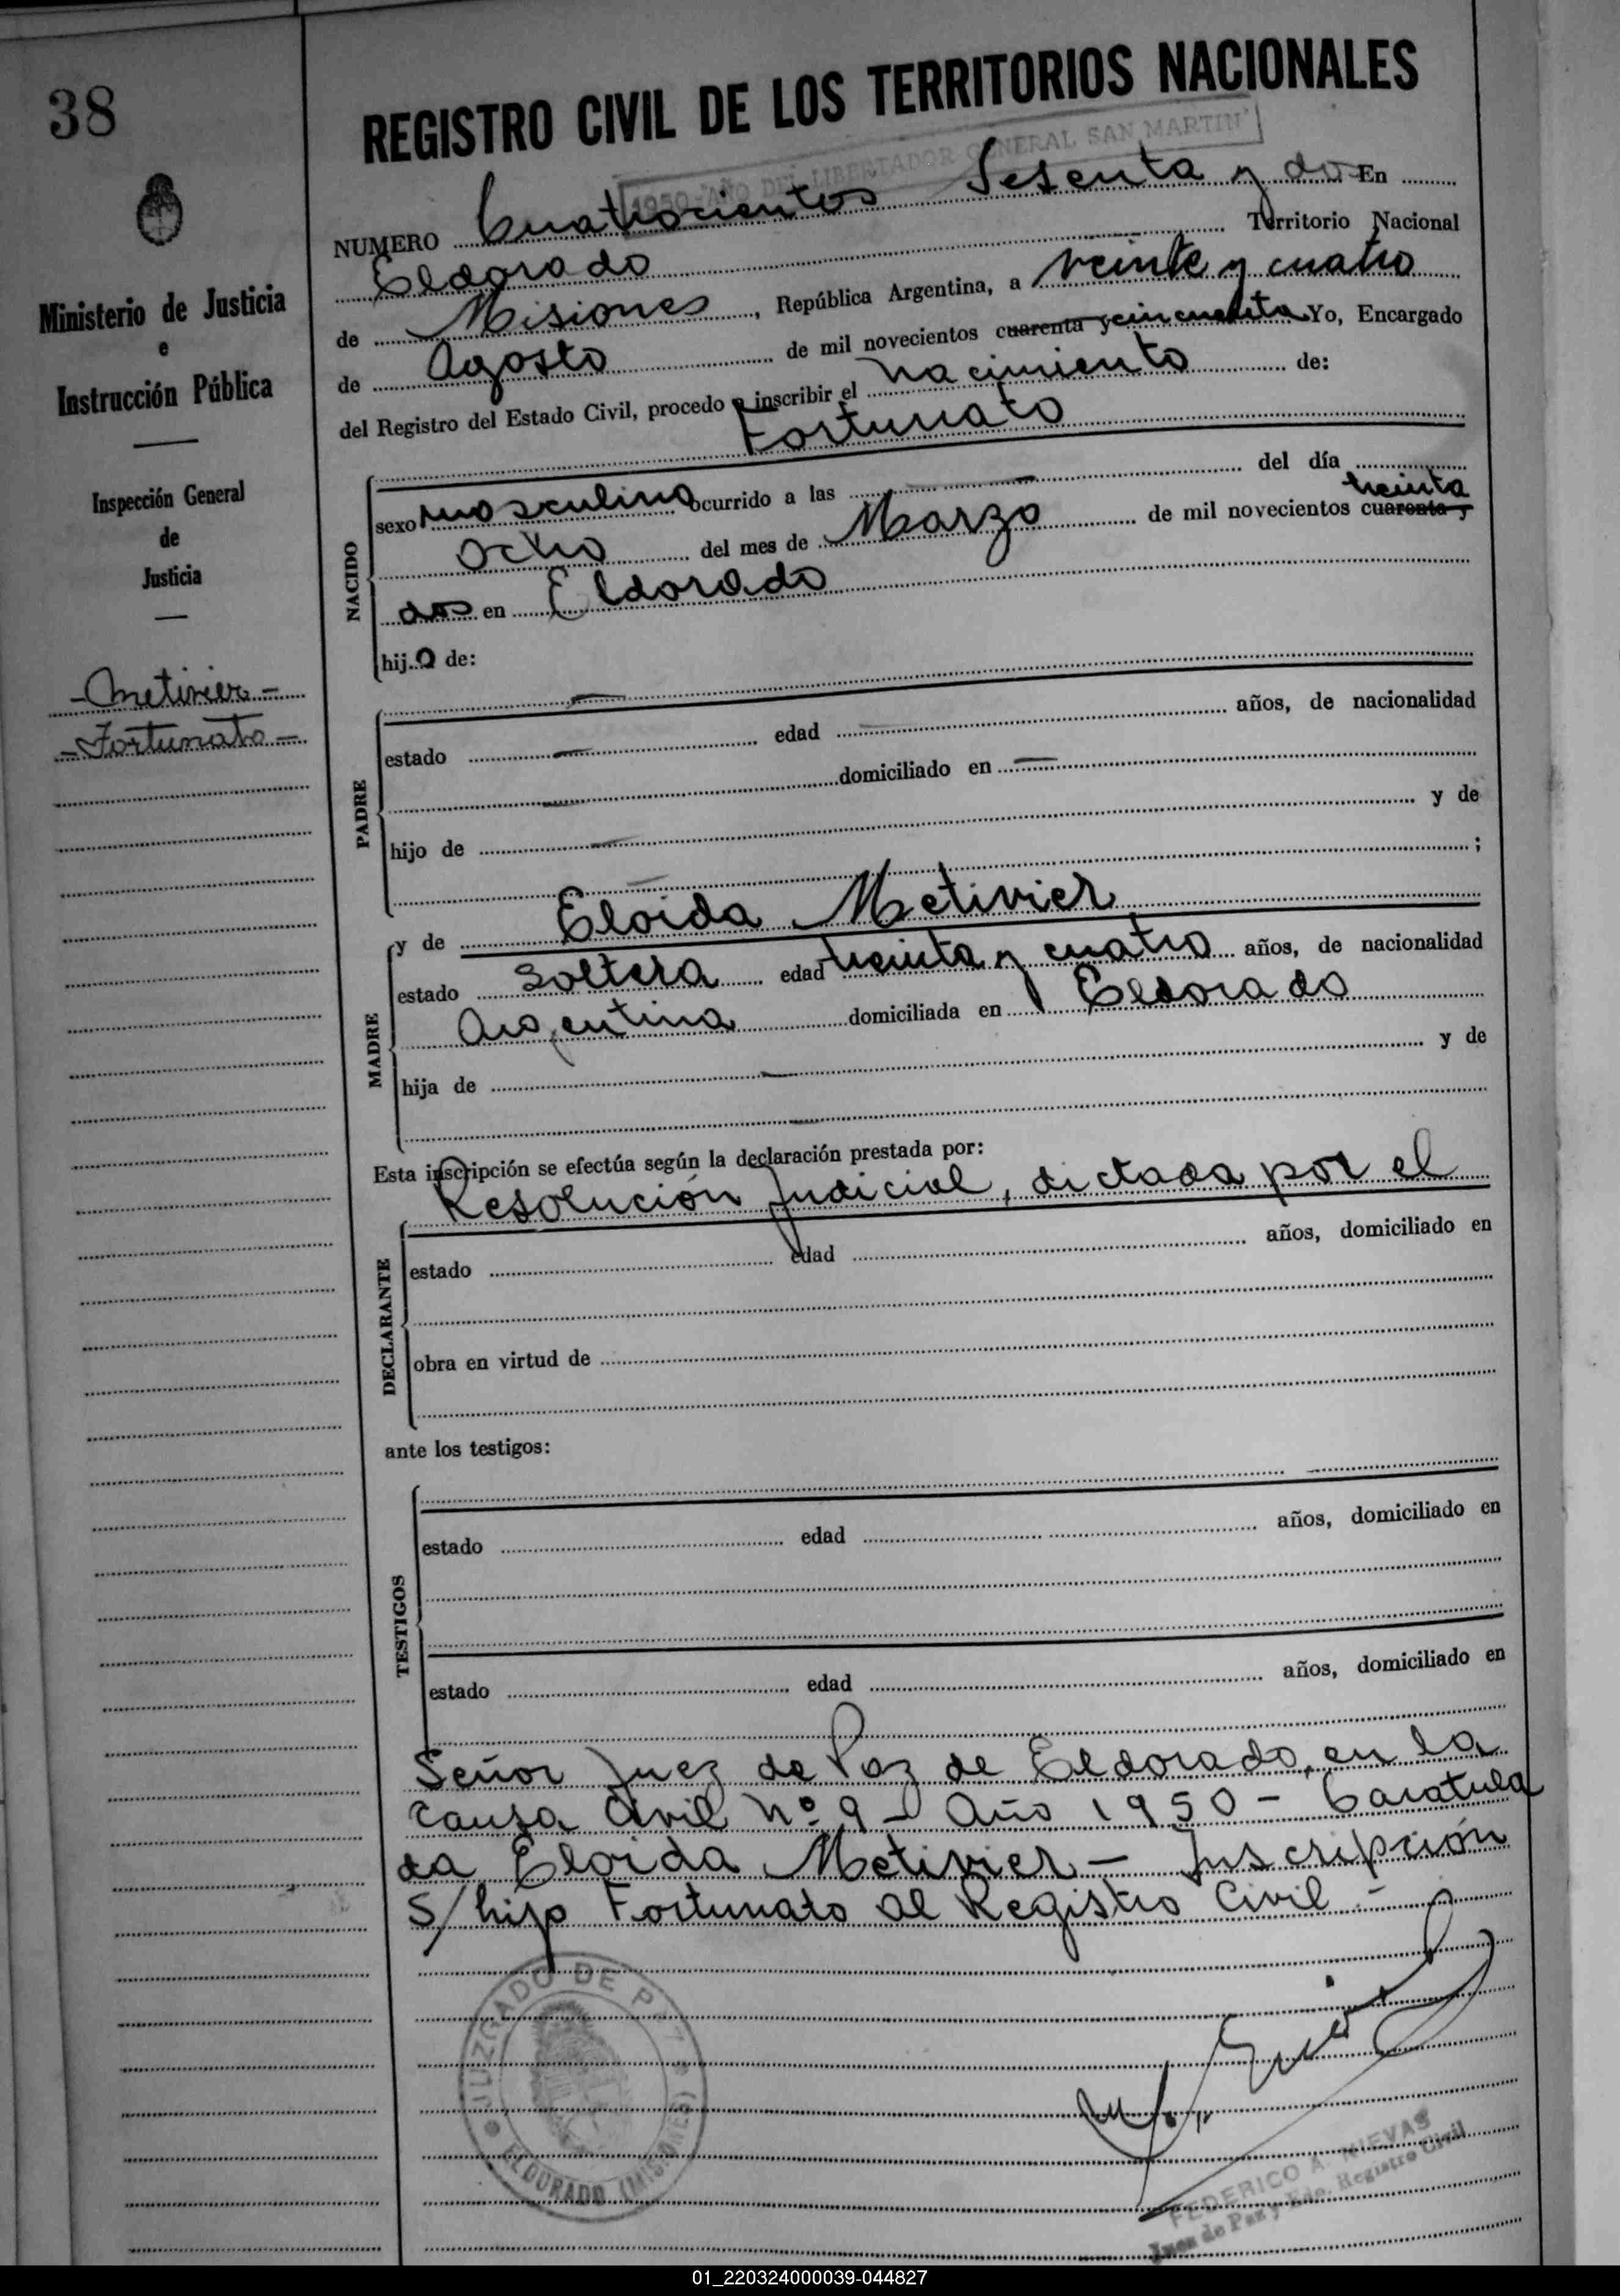 38
Ministerio de Justicia
e
Instrucción Pública
Inspección General
de
Justicia
- Metivier -
- Fortunato -
REGISTRO CIVIL DE LOS TERRITORIOS NACIONALES
1950-AÑO DEL LIBERTADOR GENERAL SAN MARTIN
NUMERO Cuatrocientos Sesenta y dos En
Eldorado Territorio Nacional
de Misiones, República Argentina, a veinte y cuatro
de Agosto de mil novecientos cuarenta y cincuenta Yo, Encargado
del Registro del Estado Civil, procedo a inscribir el nacimiento de:
Fortunato
NACIDO
sexo masculino ocurrido a las — del día
ocho del mes de Marzo de mil novecientos cuarenta y treinta
dos en Eldorado
hijo de:
—
PADRE
estado — edad años, de nacionalidad
— domiciliado en —
hijo de — y de
— ;
y de Eloida Metivier
MADRE
estado Soltera edad treinta y cuatro años, de nacionalidad
Argentina domiciliada en Eldorado
hija de — y de
—
Esta inscripción se efectúa según la declaración prestada por:
Resolución Judicial, dictada por el
DECLARANTE
estado edad años, domiciliado en
obra en virtud de
ante los testigos:
TESTIGOS
estado edad años, domiciliado en
estado edad años, domiciliado en
Señor Juez de Paz de Eldorado, en la
causa Civil Nº 9 - Año 1950 - Caratula
da Eloida Metivier - Inscripción
S/hijo Fortunato al Registro Civil.-
JUZGADO DE PAZ
ELDORADO (MISIONES)
FEDERICO A. NIEVAS
Juez de Paz y Edo. Registro Civil
01_220324000039-044827